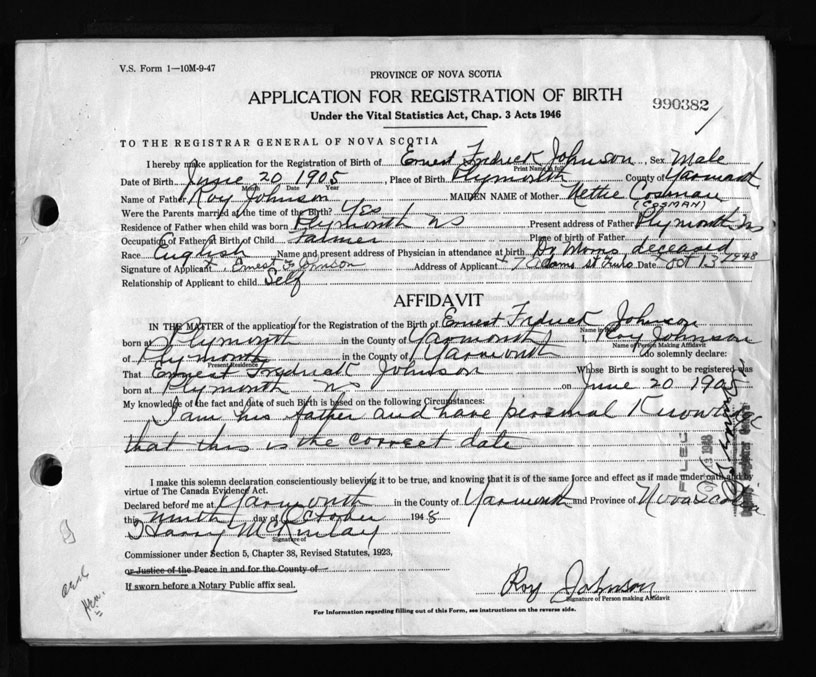 V.S. Form 1—10M-9-47
PROVINCE OF NOVA SCOTIA
APPLICATION FOR REGISTRATION OF BIRTH
990382
Under the Vital Statistics Act, Chap. 3 Acts 1946
TO THE REGISTRAR GENERAL OF NOVA SCOTIA
I hereby make application for the Registration of Birth of Ernest Fredrick Johnson, Sex Male
Print Name in full
Date of Birth June 20 1905, Place of Birth Plymouth County of Yarmouth
Month Date Year
Name of Father Roy Johnson MAIDEN NAME of Mother Nettie Cosman
(COSMAN)
Were the Parents married at the time of the Birth? Yes
Residence of Father when child was born Plymouth NS Present address of Father Plymouth NS
Occupation of Father at Birth of Child Farmer Place of birth of Father
Race English Name and present address of Physician in attendance at birth Dr Morris deceased
Signature of Applicant + Ernest F Johnson Address of Applicant + 7 Adams St Truro Date Oct 13 1948
Relationship of Applicant to child Self
AFFIDAVIT
IN THE MATTER of the application for the Registration of the Birth of Ernest Fredrick Johnson
Name in full
born at Plymouth in the County of Yarmouth I, Roy Johnson
Name of Person Making Affidavit
of Plymouth in the County of Yarmouth do solemnly declare:
Present Residence
That Ernest Fredrick Johnson Whose Birth is sought to be registered was
born at Plymouth NS on June 20 1905
My knowledge of the fact and date of such Birth is based on the following Circumstances:
I am his father and have personal Knowledge
that this is the correct date
FILED
I make this solemn declaration conscientiously believing it to be true, and knowing that it is of the same force and effect as if made under oath and by
virtue of The Canada Evidence Act.
Declared before me at Yarmouth in the County of Yarmouth and Province of Nova Scotia
this ninth day of October 1948
Harry McKinlay
Signature of
Commissioner under Section 5, Chapter 38, Revised Statutes, 1923,
or Justice of the Peace in and for the County of
If sworn before a Notary Public affix seal.
Roy Johnson
Signature of Person making Affidavit
For Information regarding filling out of this Form, see instructions on the reverse side.